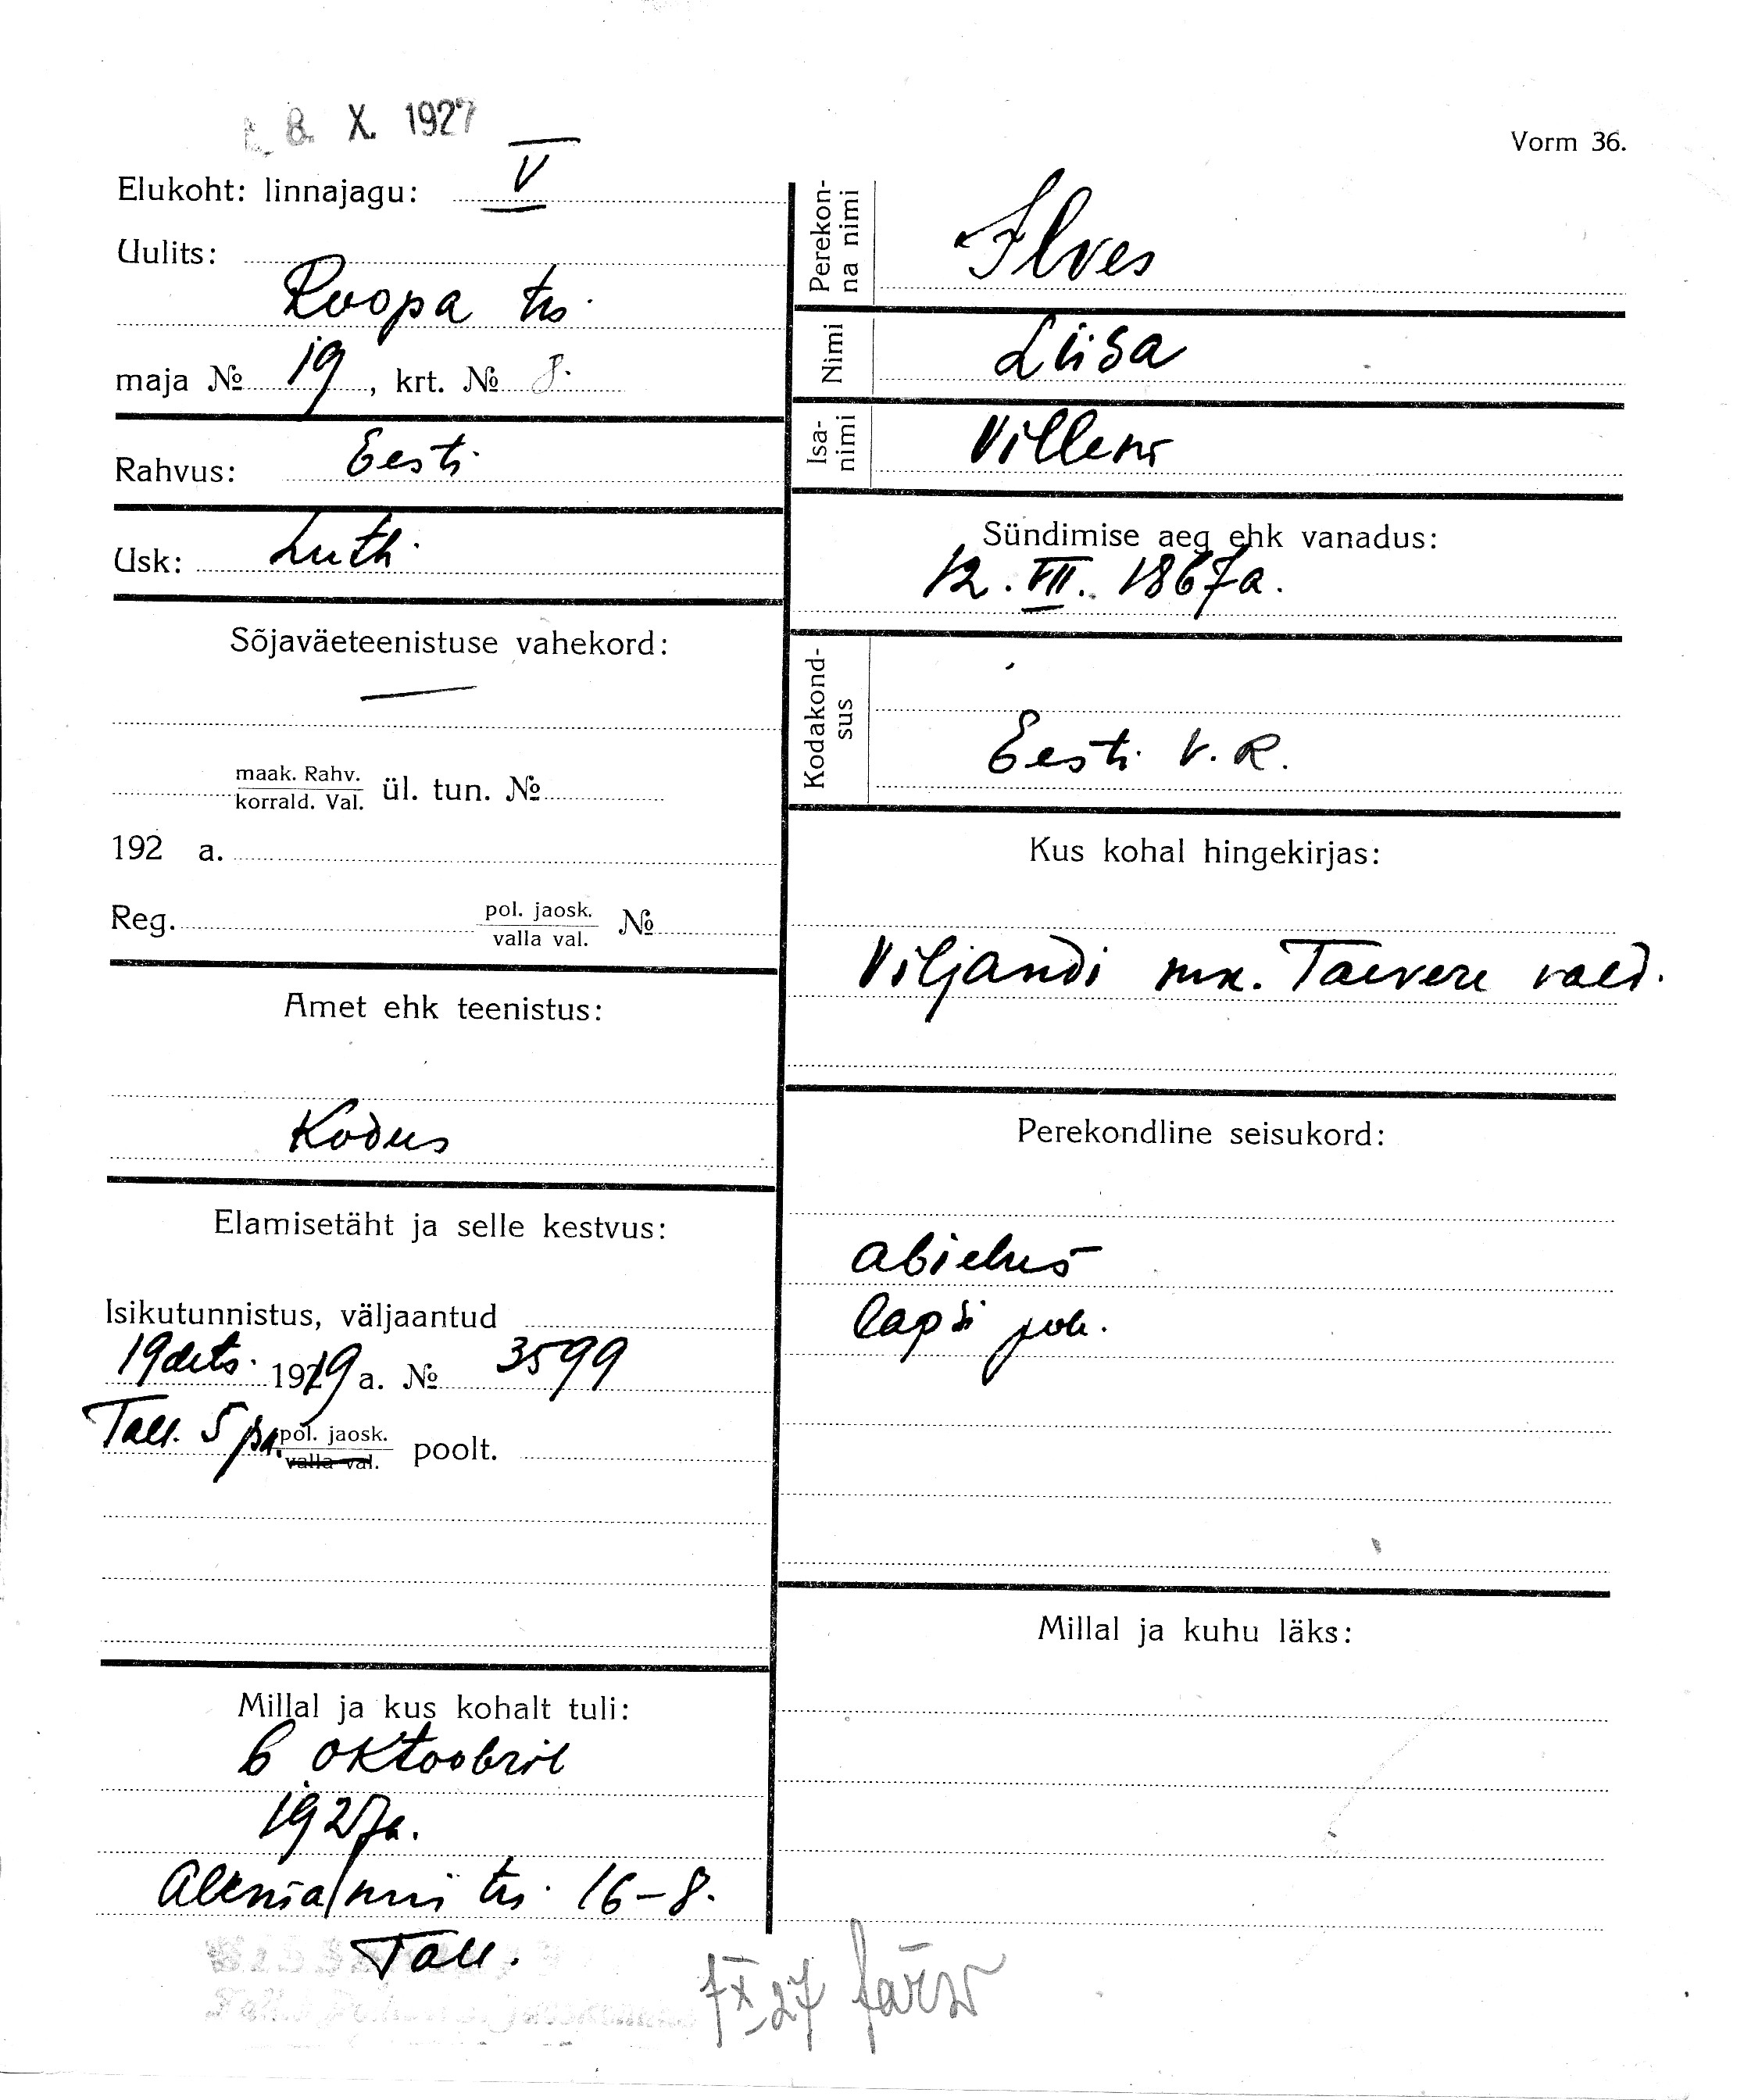 8. X. 1927
Vorm 36.
Elukoht: linnajagu: V
Uulits:
Roopa tn.
maja № 19, krt. № 8.
Rahvus: Eesti
Usk: Luth.
Sõjaväeteenistuse vahekord:
—
maak. Rahv.
korrald. Val. ül. tun. №
192 a.
Reg. pol. jaosk.
valla val. №
Amet ehk teenistus:
Kodus
Elamisetäht ja selle kestvus:
Isikutunnistus, väljaantud
19 dets. 1919 a. № 3599
Tall. 5 pol. jaosk.
valla val. poolt.
Millal ja kus kohalt tuli:
6 oktoobril
1927a.
tn. 16-8.
Tall.
Perekon-
na nimi
Ilves
Nimi Liisa
Isa-
nimi
Villem
Sündimise aeg ehk vanadus:
12. VII. 1867a.
Kodakond-
sus
Eesti V. R.
Kus kohal hingekirjas:
Viljandi mk. Taevere vald.
Perekondline seisukord:
abielus
lapsi pole.
Millal ja kuhu läks:
7 X 27